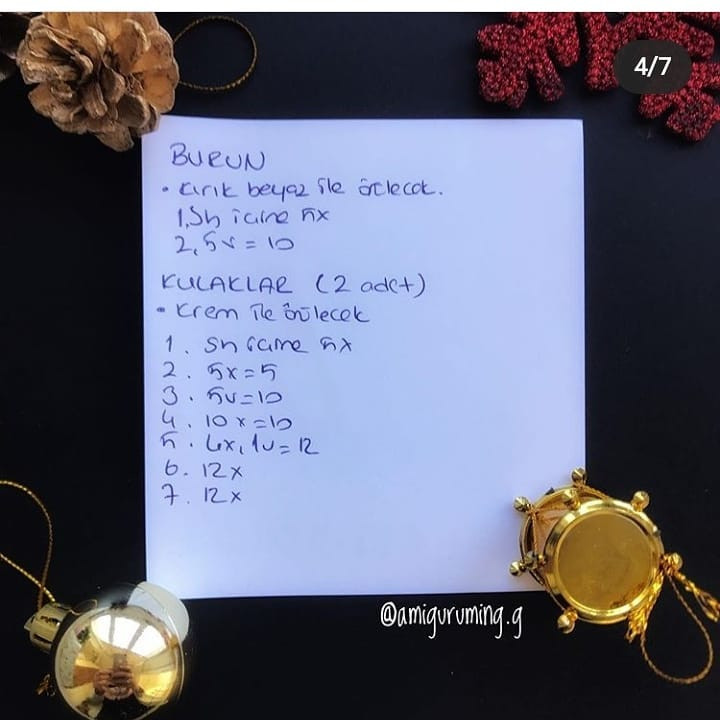 4/7
BURUN
• Kırık beyaz ile örülecek.
1, Sh içine 5x
2, 5v = 10
KULAKLAR (2 adet)
• Krem ile örülecek
1. Sh içine 5x
2. 5x=5
3. 5v=10
4. 10x=10
5. 4x, 1v=12
6. 12x
7. 12x
@amiguruming.g